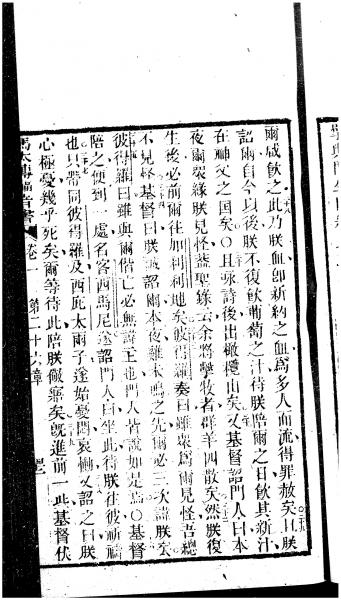 爾咸飲之此乃朕血卽新約之血爲多人而流得罪赦矣且朕
詔爾自今以後朕不復飲葡萄之汁待朕陪爾之日飲其新汁
在神父之国矣〇且咏詩後出橄欖山矣又基督詔門人曰本
夜爾眾緣朕見怪蓋聖錄云余將擊牧者群羊四散矣然朕復
生後必前爾往加利利地矣彼得羅奏曰雖眾爲爾見怪吾總
不見怪基督曰朕誠詔爾本夜雞未鳴之先爾必三次諱朕云
彼得羅曰雖與爾偕亡必無諱主也門人皆說如是焉〇基督
陪之便到一處名客西馬尼遂詔門人曰坐此待朕往彼祈禱
也只帶同彼得羅及西庇太兩子遂始憂悶哀慟又詔之曰朕
心極憂幾乎死矣爾等待此陪朕儆寤矣旣進前一此基督伏
馬太傳福音書 卷一 第二十六章